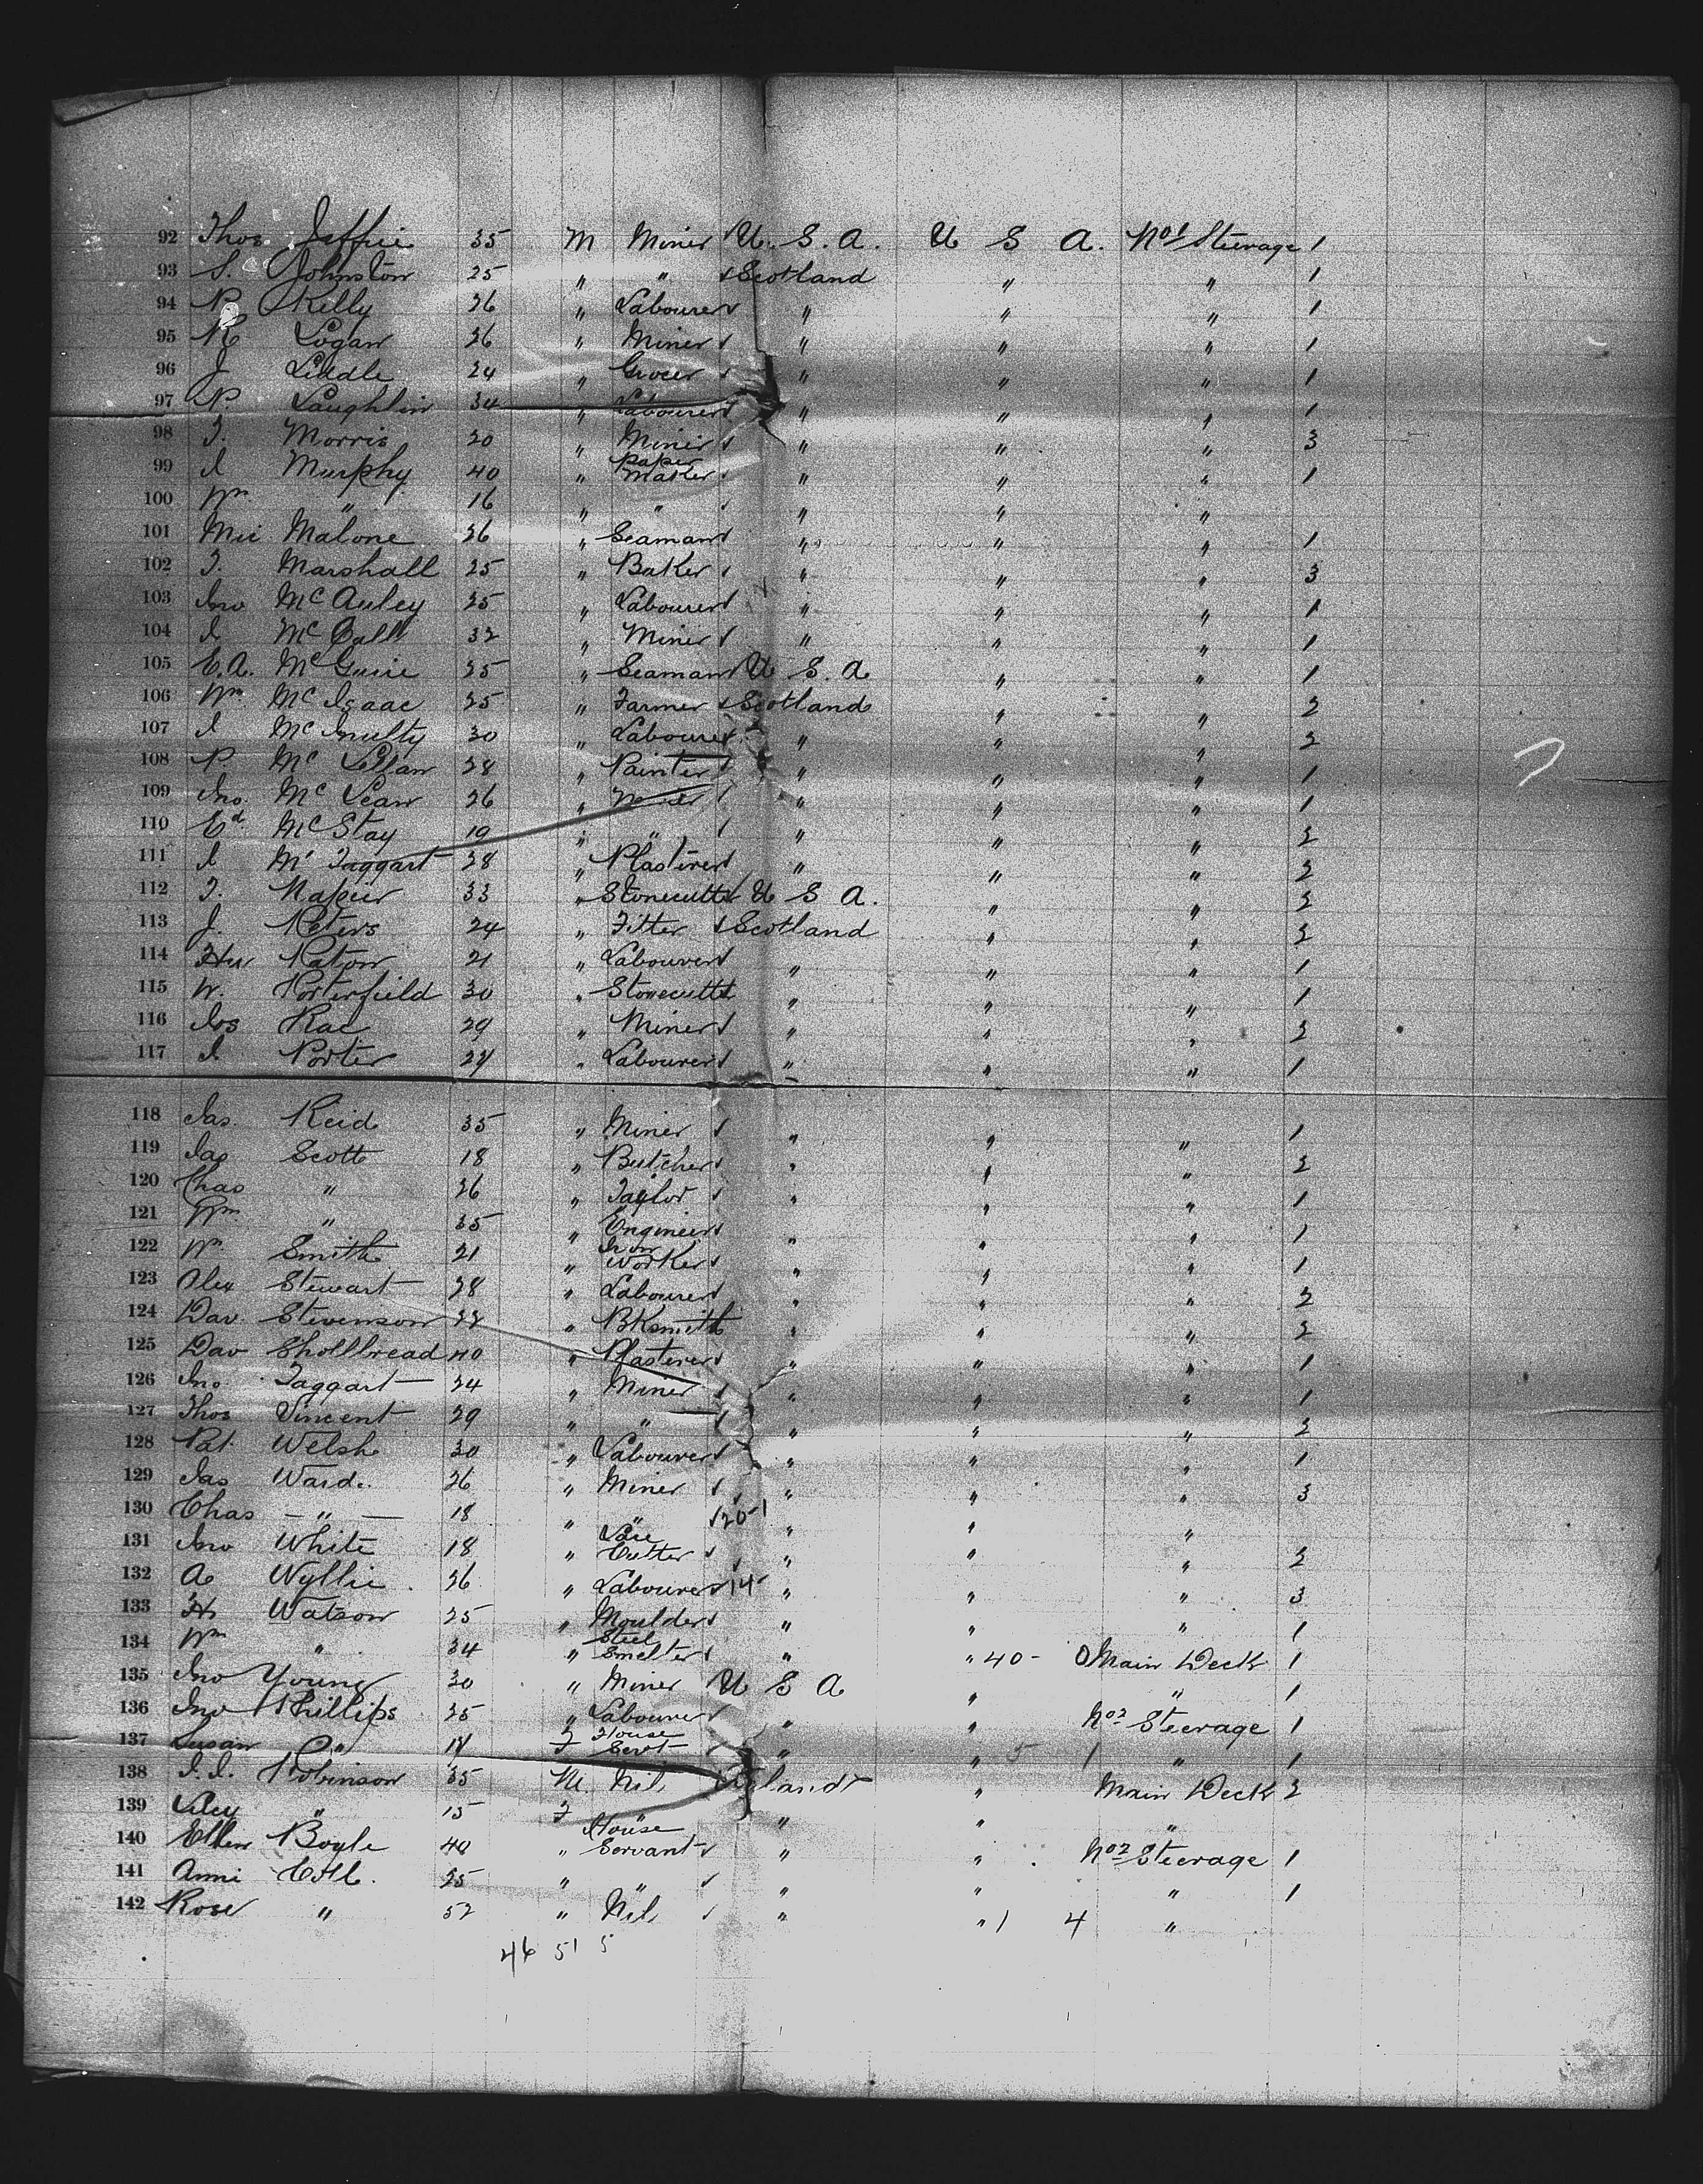 92 Thos Jaffrie 35 M Miner U. S. A. U S A. No 1 Steerage 1
93 S. Johnston 25 " " Scotland " " 1
94 P. Kelly 26 " Labourer " " " 1
95 Logan 26 " Miner " " " 1
96 J Liddle 24 " Grocer " " " 1
97 P. Laughlin 34 " Labourer " " " 1
98 T. Morris 20 " Miner " " " 3
99 J Murphy 40 " Paper Maker " " " 1
100 Wm " 16 " " " " "
101 Mic Malone 26 " Seaman " " " 1
102 T. Marshall 25 " Baker " " " 3
103 Jno McAuley 25 " Labourer " " " 1
104 J McCall 32 " Miner " " " 1
105 E.A. McGuire 25 " Seaman U S. A " " 1
106 Wm McIsaac 25 " Farmer Scotland " " 2
107 J McAnulty 30 " Labourer " " " 2
108 P McLellan 28 " Painter " " " 1
109 Jno. McLean 26 " Miner " " " 1
110 Ed McStay 19 " " " " " 2
111 J McTaggart 28 " Plasterer " " " 2
112 T. Napier 33 " Stonecutter U S A. " " 2
113 J. Peters 24 " Fitter Scotland " " 2
114 Hu Paton 21 " Labourer " " " 1
115 W. Porterfield 30 " Stonecutter " " " 1
116 Jos Rae 29 " Miner " " " 2
117 J Porter " Labourer " " " 1
118 Jas. Reid 35 " Miner " " " 1
119 Jas Scott 18 " Butcher " " " 2
120 Chas " 26 " Taylor " " " 1
121 Wm " 35 " Engineer " " " 1
122 Wm Smith 21 " Iron Worker " " " 1
123 Alex Stewart 28 " Labourer " " " 2
124 Dav. Stevenson 22 " BKsmith " " " 2
125 Dav Shollbread 40 " Plasterer " " " 1
126 Jno. Taggart 24 " Miner " " " 1
127 Thos Vincent 29 " " " " " 2
128 Pat. Welsh 30 " Labourer " " " 1
129 Jas Ward. 26 " Miner " " " 3
130 Chas — " — 18 " " 20-1 " " "
131 Jno White 18 " Cutter " " " 2
132 A Wyllie 26 " Labourer 14- " " " 3
133 H Watson 25 " Moulder " " " 1
134 Wm " 34 " Steel Smelter " " 40- 0 Main Deck 1
135 Jno Young 30 " Miner U S A " " 1
136 Jno Phillips 25 " Labourer " " No 2 Steerage 1
137 Susan " F House Servt " " 5 1 " 1
138 Robinson 35 M. Nil " Main Deck 2
139 " 15 F " " "
140 Ellen Boyle 40 " House Servant " " No 2 Steerage 1
141 Anni 25 " " " " " 1
142 Rose " 52 " Nil " " 1 4 "
46 51 5